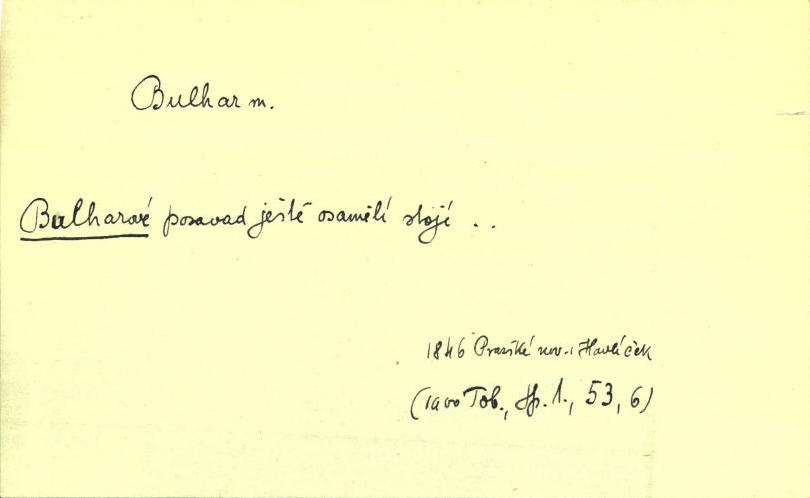 Bulhar m.
Bulharové posavad ještě osamělí stojí . .
1846 Pražské nov. Havlíček
(1900 Tob., Sp. 1., 53, 6)